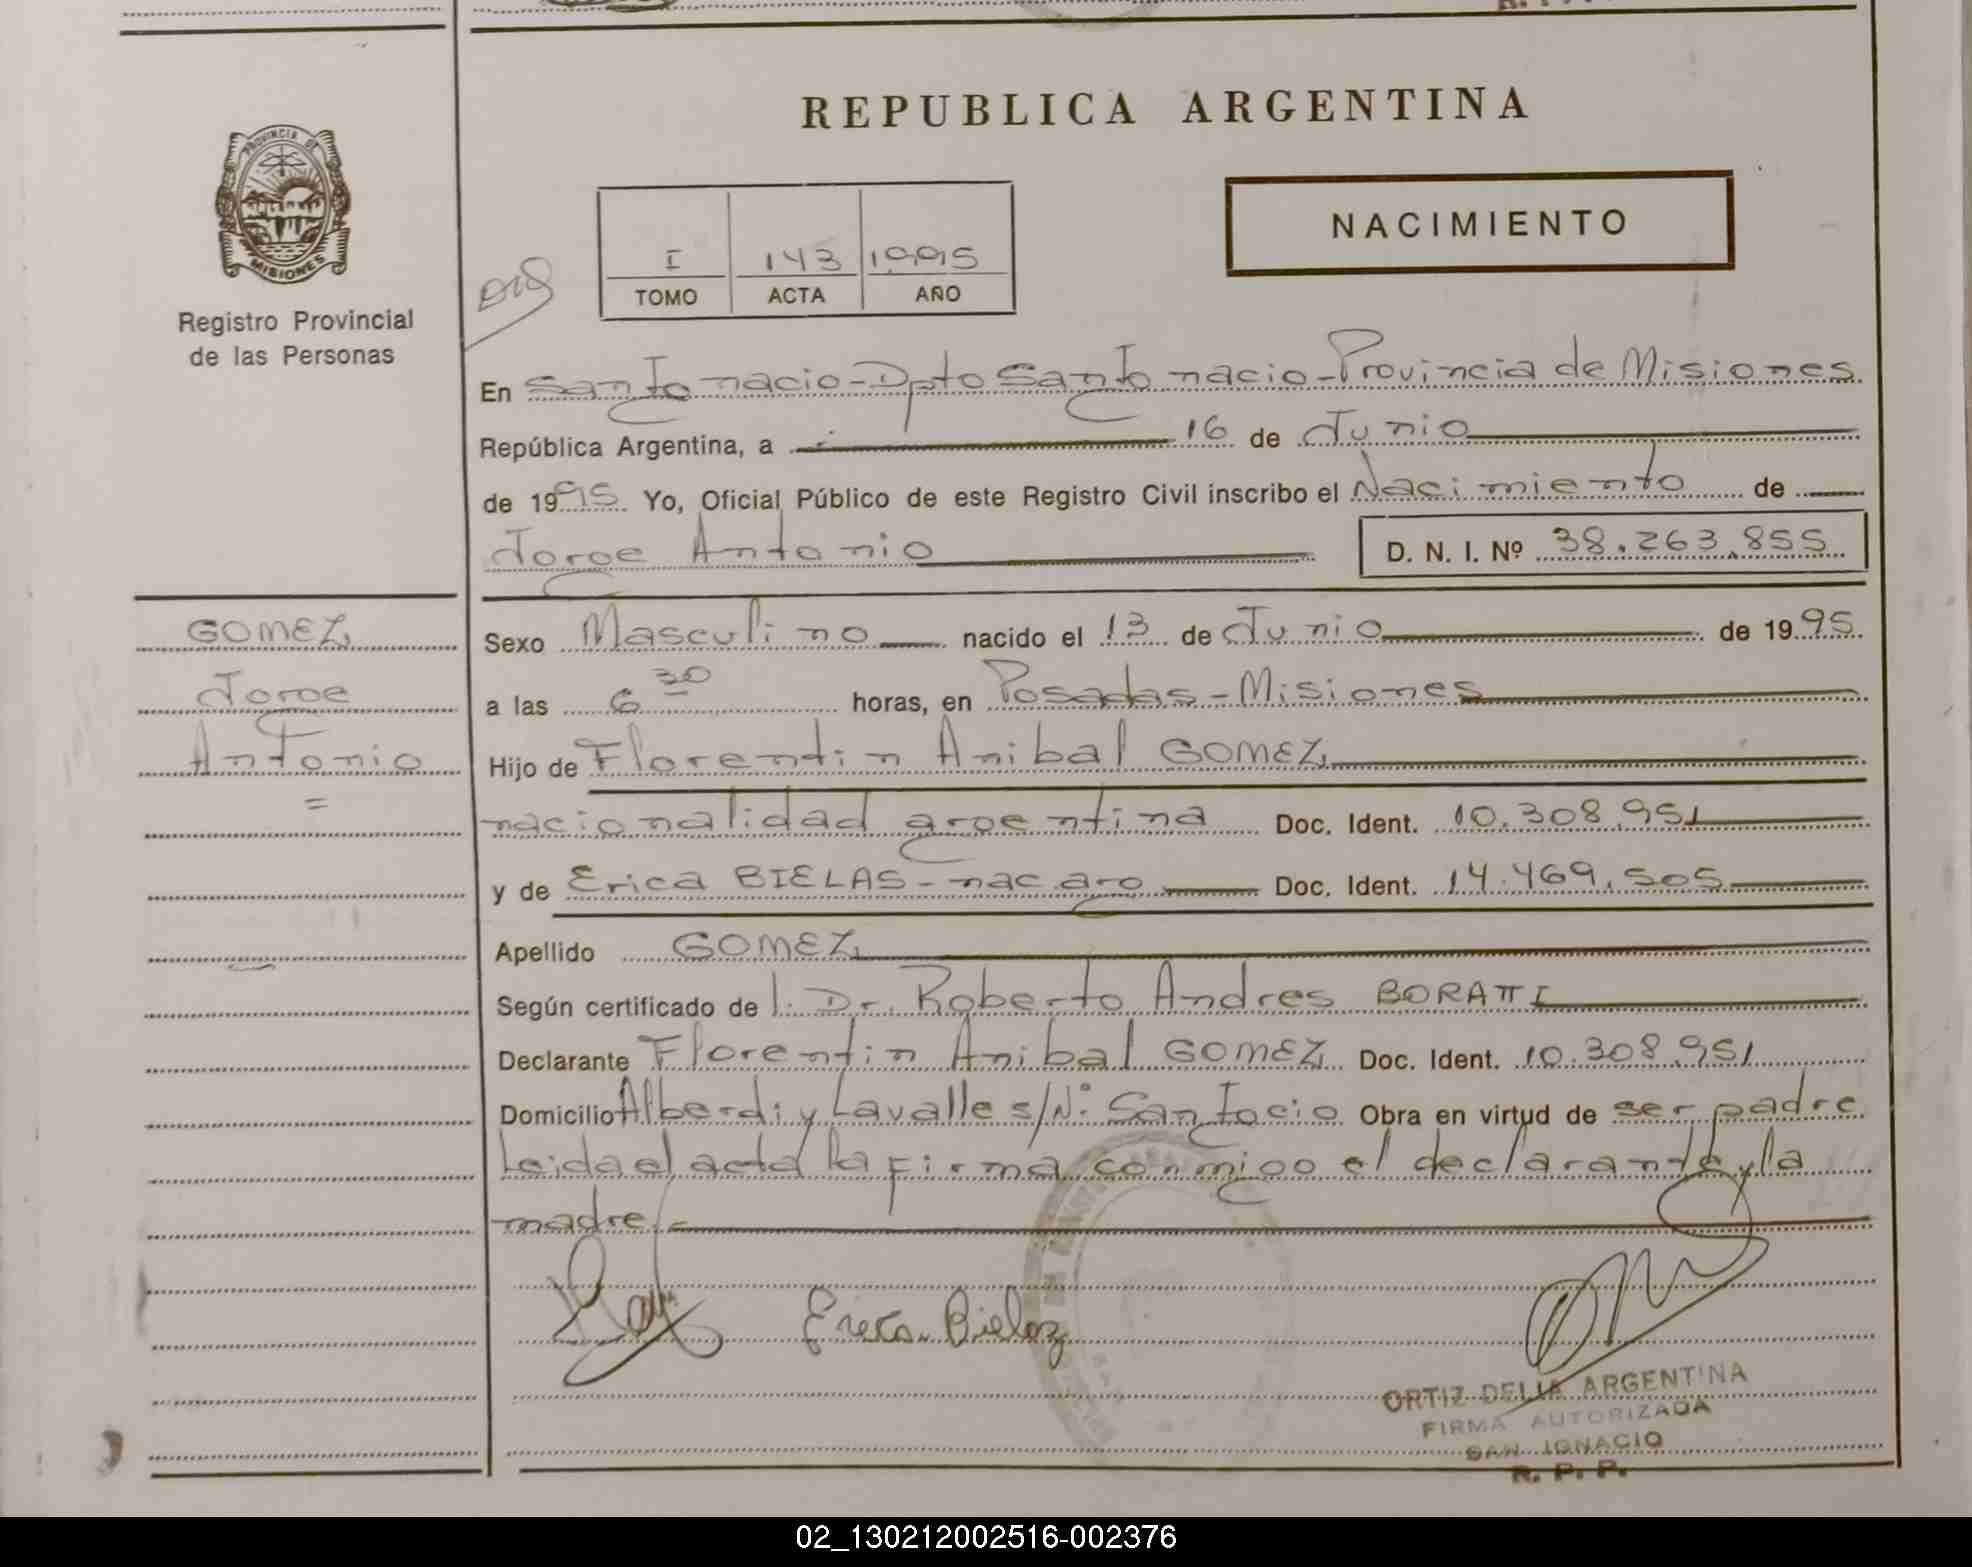 REPUBLICA ARGENTINA
PROVINCIA DE
MISIONES
Registro Provincial
de las Personas
NACIMIENTO
I 143 1995
TOMO ACTA AÑO
En San Ignacio - Dpto San Ignacio - Provincia de Misiones
República Argentina, a 16 de Junio
de 1995 Yo, Oficial Público de este Registro Civil inscribo el Nacimiento de
Jorge Antonio D. N. I. Nº 38.263.855
GOMEZ
Jorge
Antonio
=
Sexo Masculino nacido el 13 de Junio de 1995
a las 6 30 horas, en Posadas - Misiones
Hijo de Florentin Anibal GOMEZ
nacionalidad argentina Doc. Ident. 10.308.951
y de Erica BIELAS - nac. arg Doc. Ident. 14.469.505
Apellido GOMEZ
Según certificado de l. Dr. Roberto Andres BORATTI
Declarante Florentin Anibal GOMEZ Doc. Ident. 10.308.951
Domicilio Alberdi y Lavalle s/Nº San Igcio Obra en virtud de ser padre
Leida el acta la firma conmigo el declarante y la
madre.
Erica Bielaz
ORTIZ DELIA ARGENTINA
FIRMA AUTORIZADA
SAN IGNACIO
R. P. P.
02_130212002516-002376